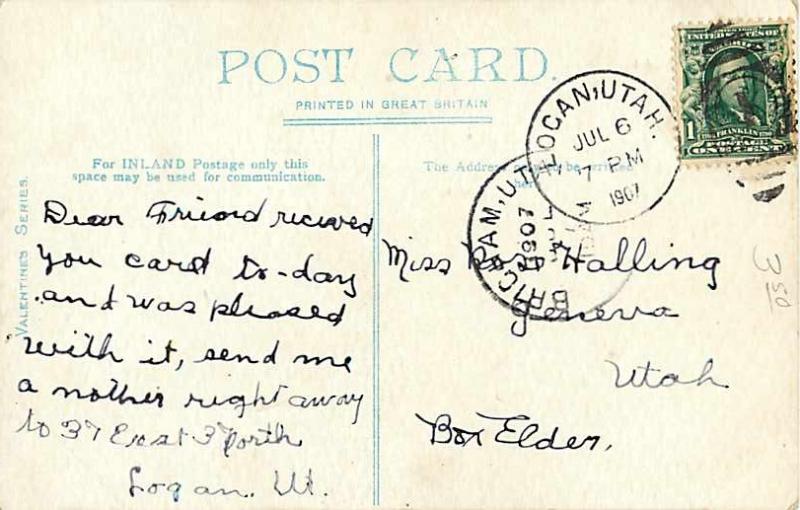 POST CARD.
PRINTED IN GREAT BRITAIN
For INLAND Postage only this
space may be used for communication.
The Address
VALENTINES SERIES.
Dear Friend recieved
you card to-day
and was pleased
with it, send me
a nother right away
to 37 East 3 North
Logan. Ut.
Miss Halling
Geneva
Utah
Box Elder,
LOGAN, UTAH.
JUL 6
7 PM
1907
BRIGHAM, UT
1907
UNITED STATES
1
FRANKLIN
POSTAGE
ONE CENT
3 50